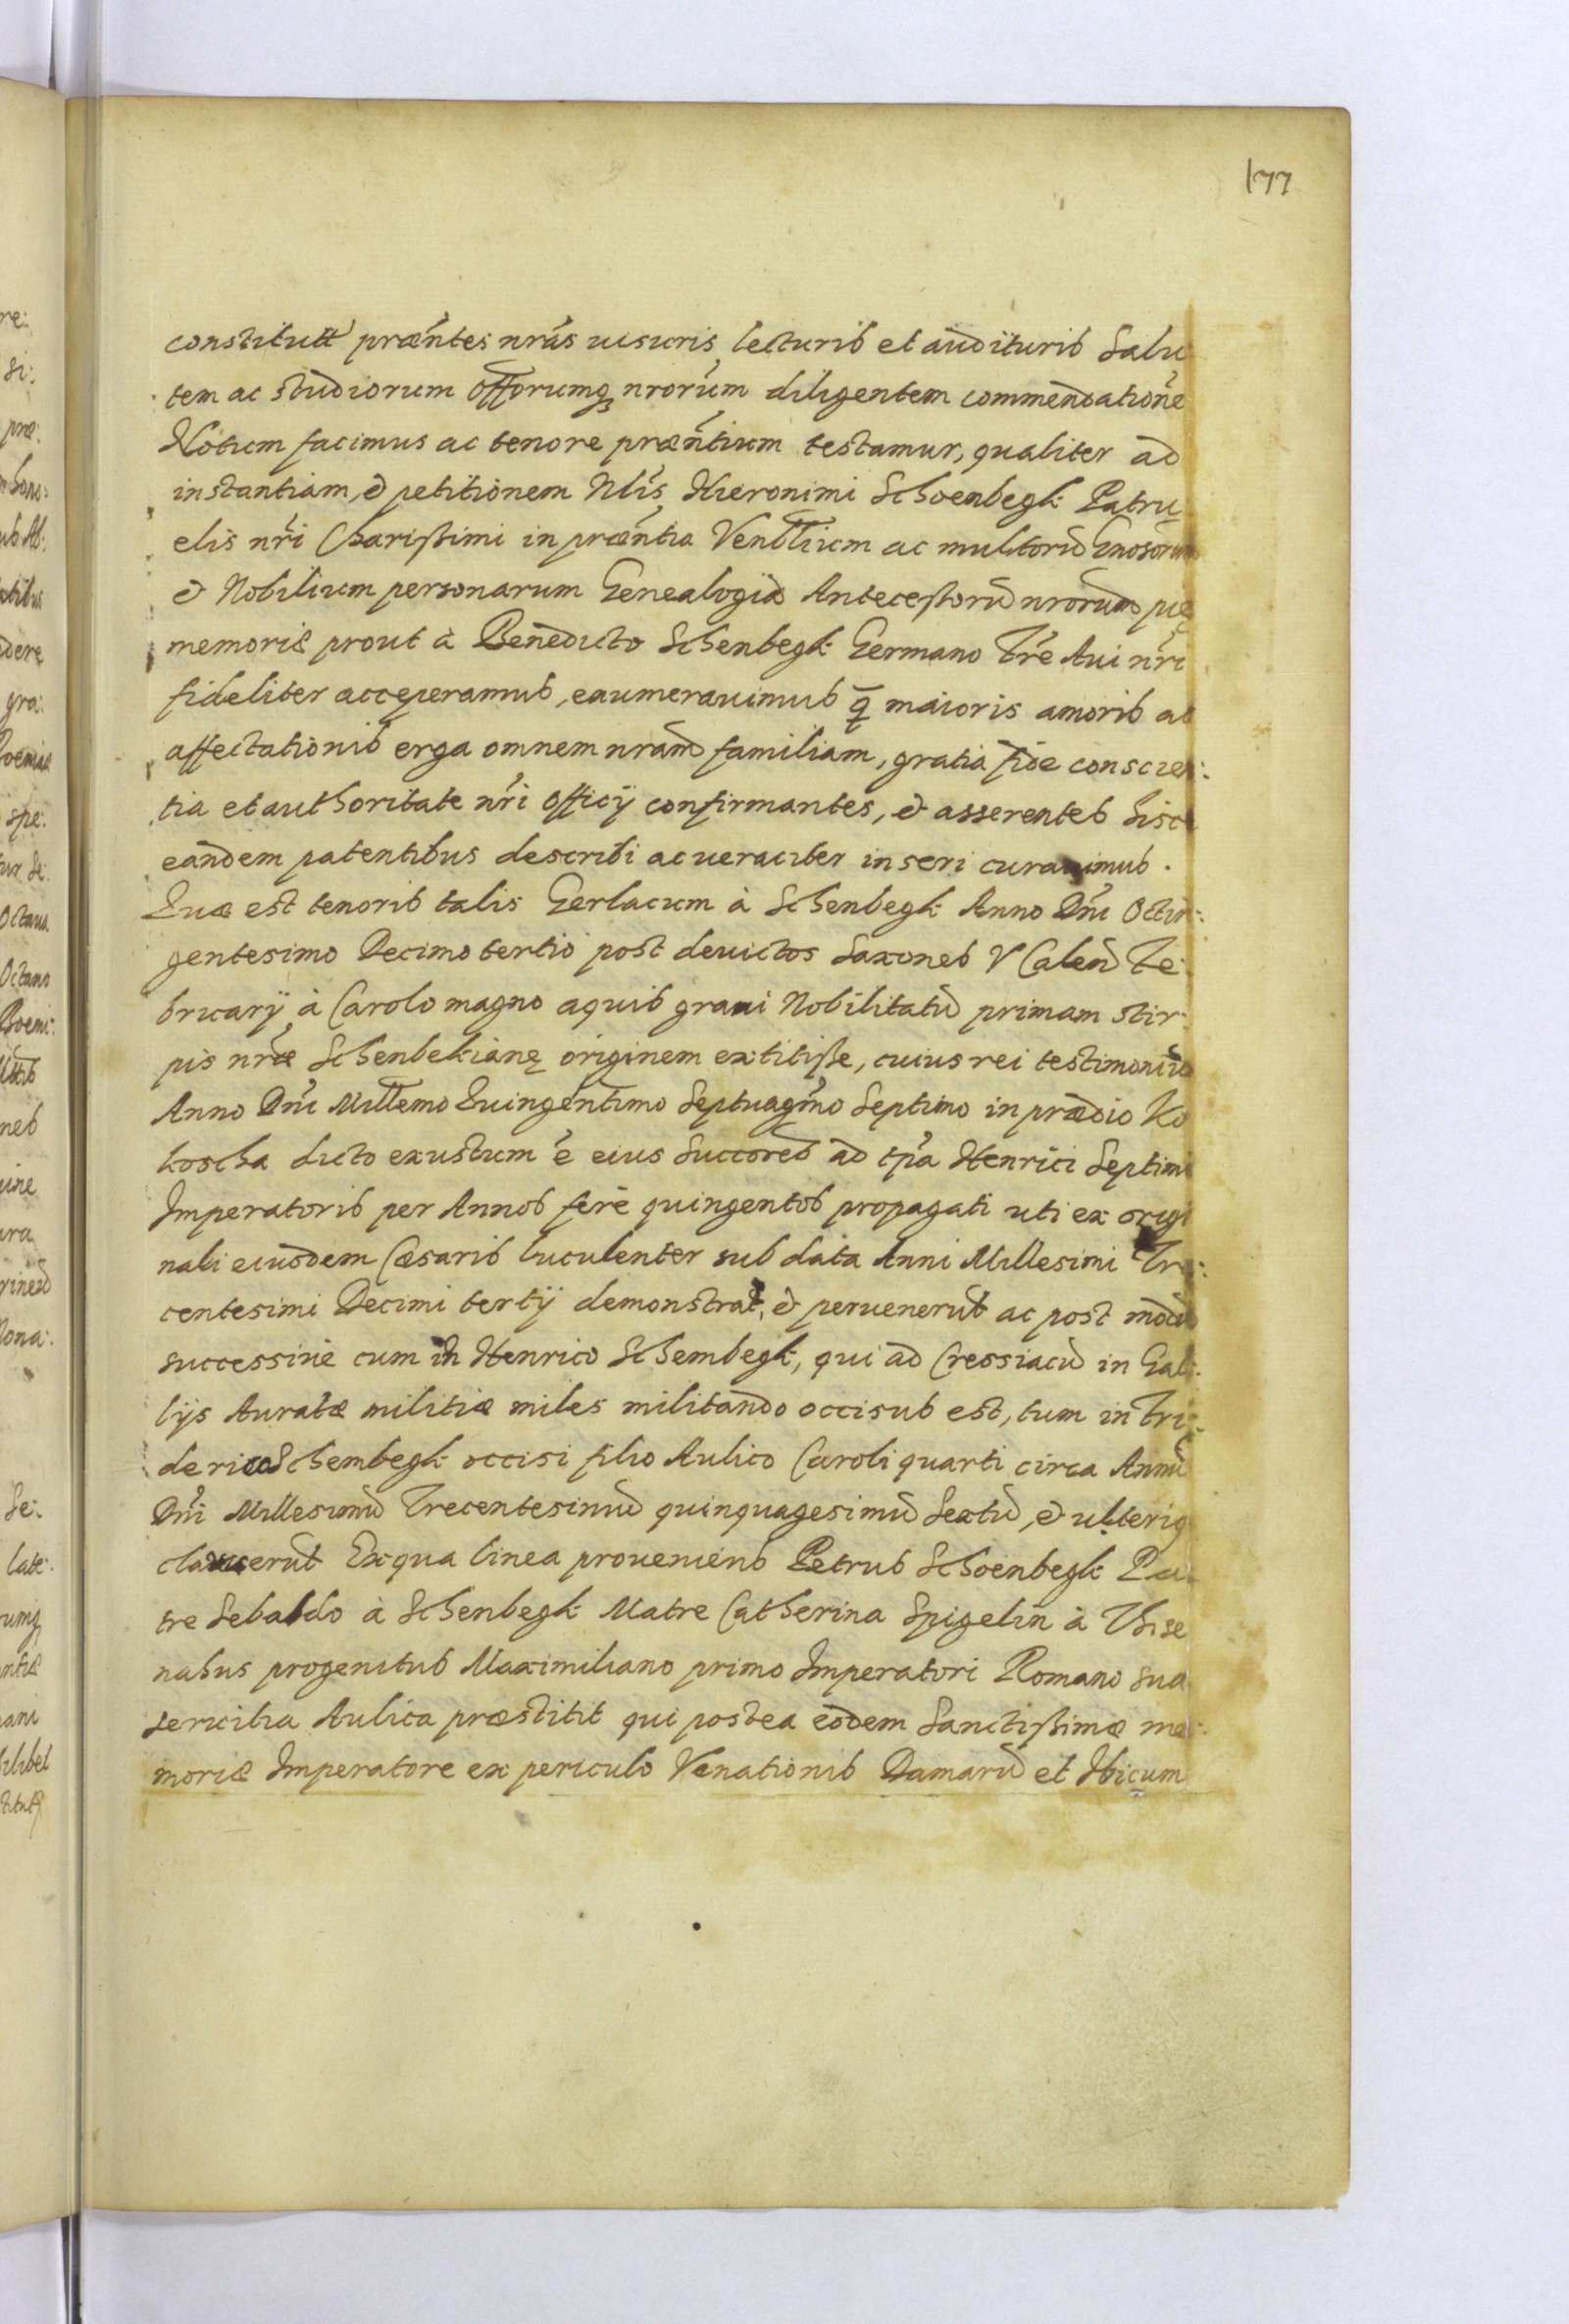 177
constitutt præntes nrãs uisuris lecturis et audituris Salu
tem ac studiorum offorumq nrorum diligentem commendationẽ
Notum facimus ac tenore præntium testamur, qualiter ad
instantiam, & petitionem Nlis Hieronimi Schoenbegk Patru
elis nri Charißimi in præntia Venblium ac multorũ Gnosorum
& Nobilium personarum Genealogiã Antecessorũ nrorum pię
memoriæ prout à Benedicto Schenbegk Germano Fre Aui nri
fideliter acceperamus, enumerauimus q̃ maioris amoris ac
affectationis erga omnem nram familiam, gratia fide conscien:
tia et authoritate nri officÿ confirmantes, & asserentes hisce
eandem patentibus describi ac ueraciter inseri curauimus.
Quæ est tenoris talis Gerlacum à Schenbegk Anno Dni Octin:
gentesimo Decimo tertio post deuictos Saxones V Calend Fe
bruarÿ à Carolo magno aquis grani Nobilitatũ primam stir
pis nræ Schenbekianę originem extitiße, cuius rei testimoniũ
Anno Dni Millemo Quingentimo Septuagmo Septimo in prædio Ko
koscha dicto exustum ẽ eius Succores ad tpa Henrici Septimi
Imperatoris per Annos ferè quingentos propagati uti ex origi
nali eiusdem Cæsaris luculenter sub data Anni Millesimi Tre:
centesimi Decimi tertÿ demonstrat, & peruenerũt ac post modũ
successiuè cum in Henrico Schembegk, qui ad Cressiacũ in Gal:
lÿs Auratæ militiæ miles militando occisus est, tum in Fri:
derico Schembegk occisi filio Aulico Caroli quarti circa Annũ
Dni Millesimũ Trecentesimũ quinquagesimũ Sextũ, & ulterig
claruerũt Ex qua linea proueniens Petrus Schoenbegk Pa
tre Sebaldo à Schenbegk Matre Catherina Spigelin à Thise
nahus progenitus Maximiliano primo Imperatori Romano sua
seruitia Aulica præstitit qui postea eodem Sanctißimæ me:
moriæ Imperatore ex periculo Venationis Damarũ et Ibicum